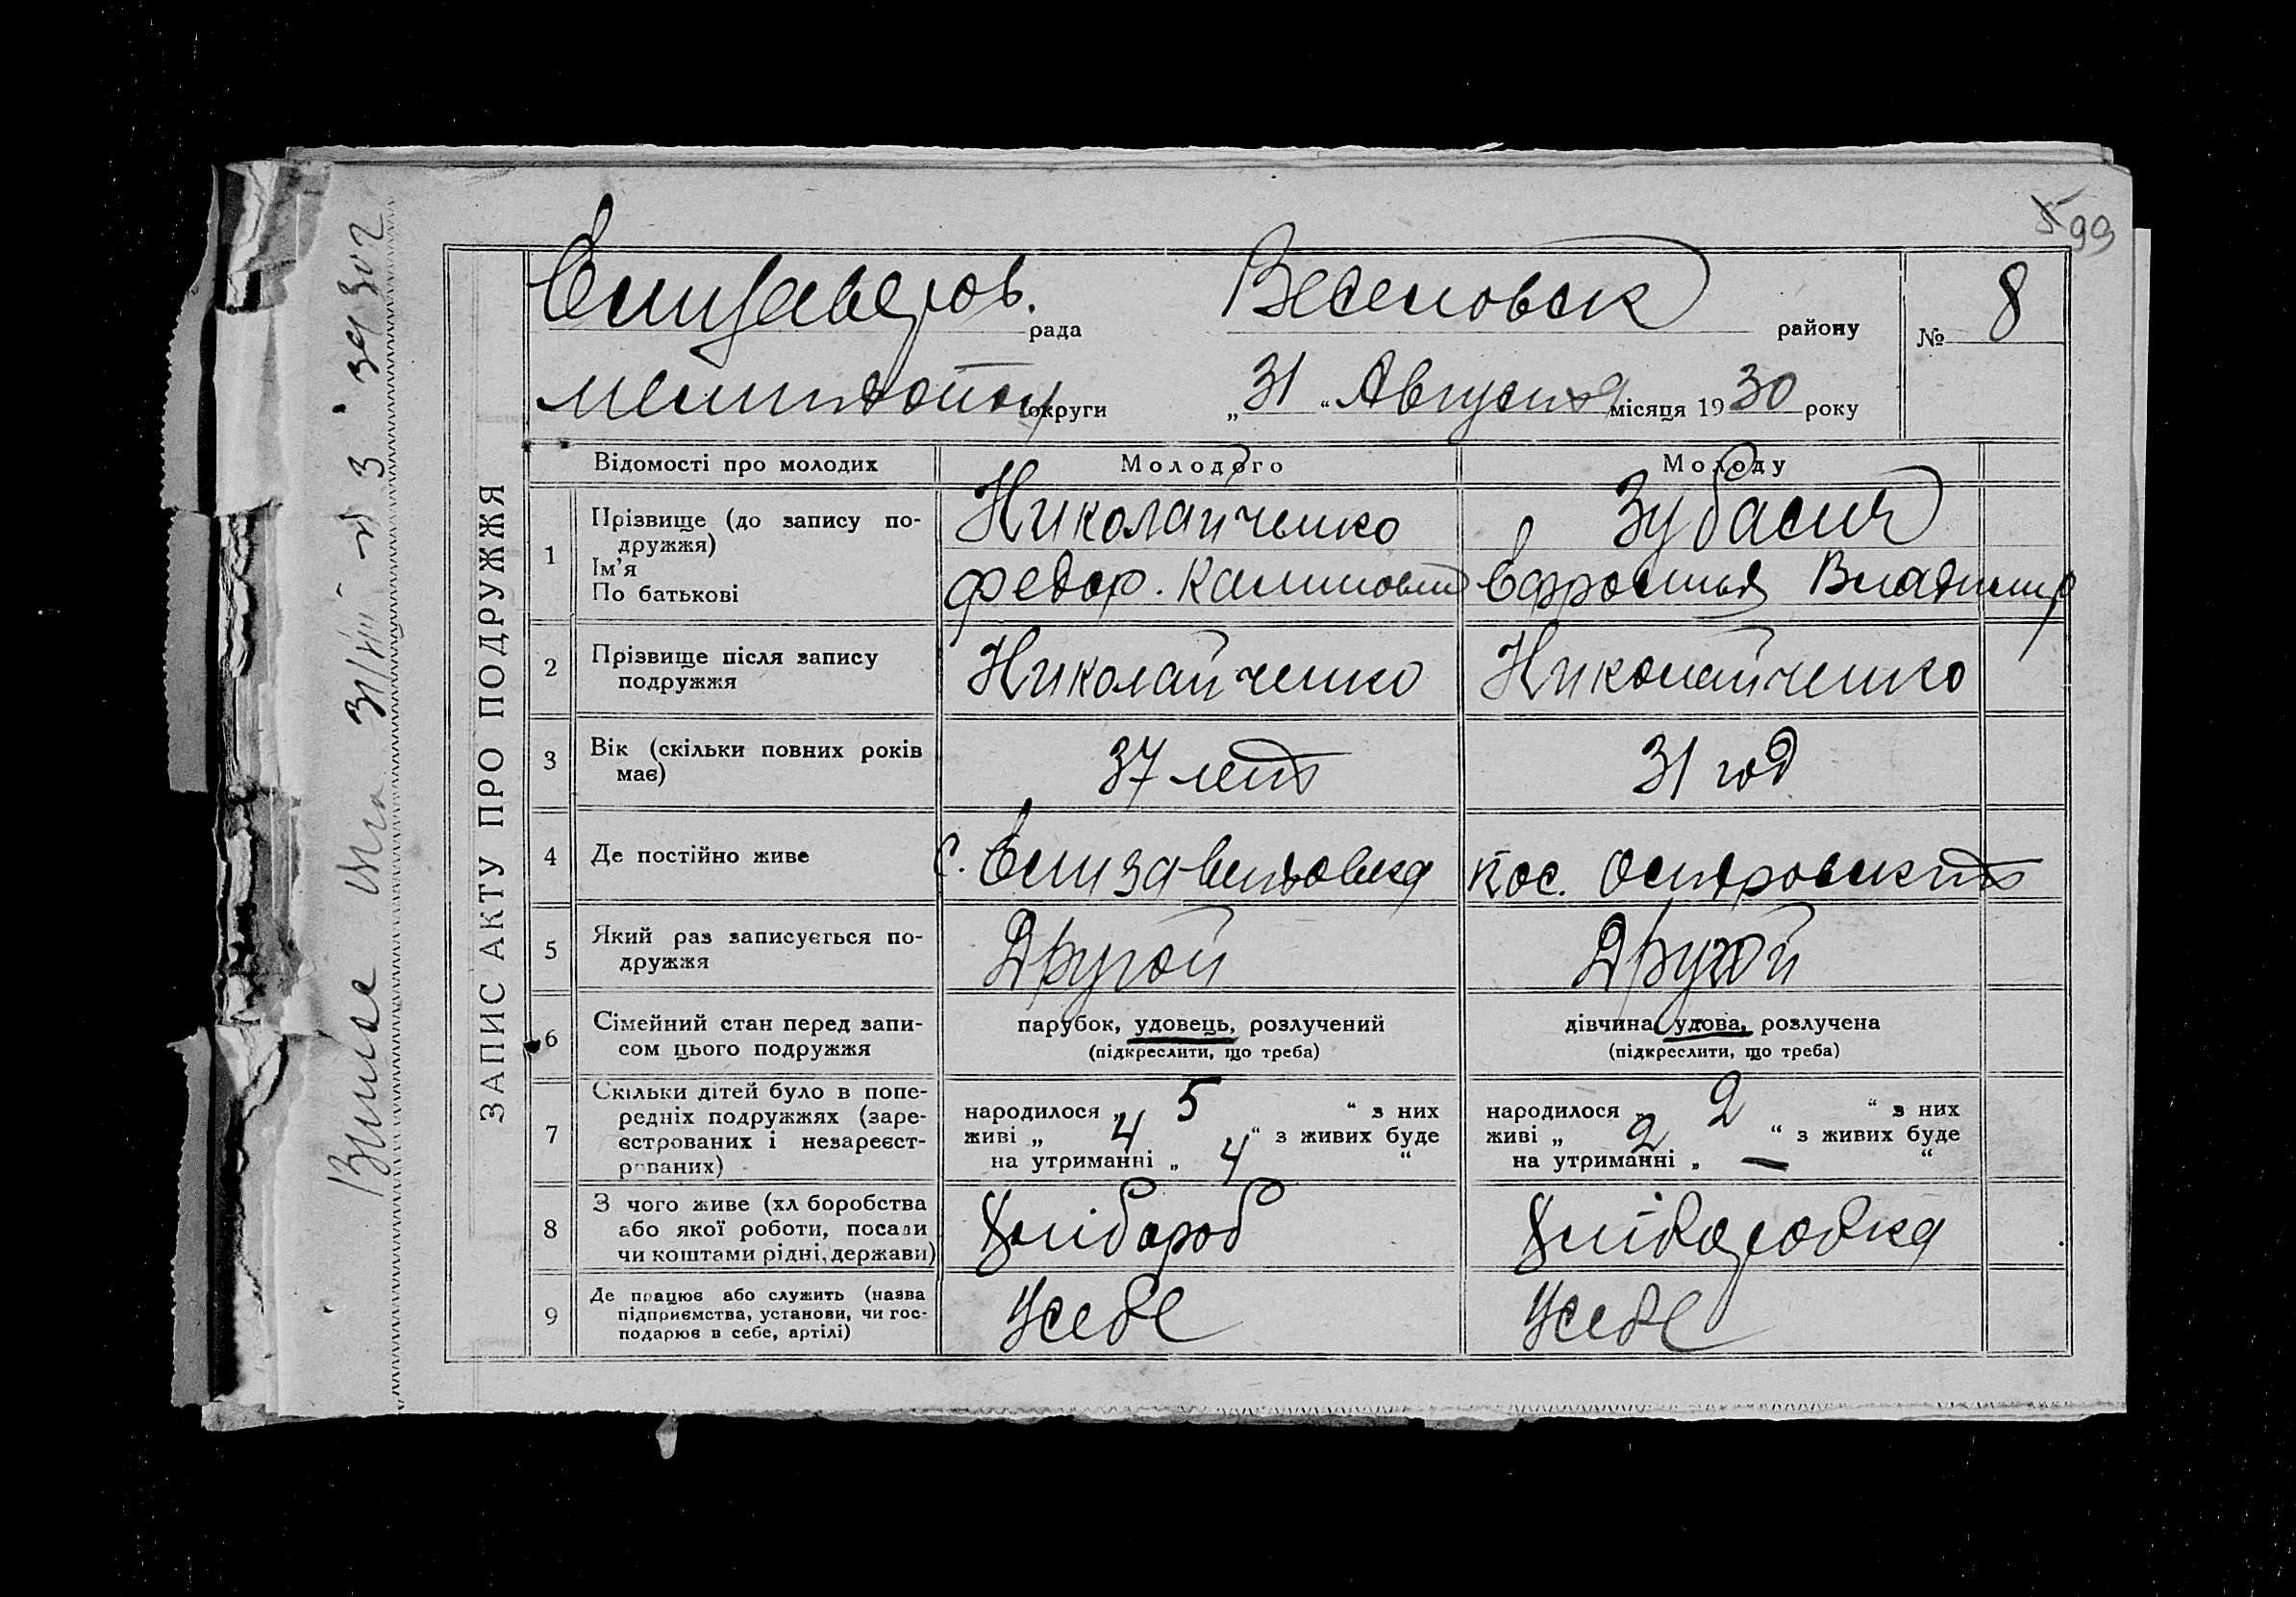 99
Елизаветов. рада Веселовск району № 8
Мелитопол округи „31“ Августа місяця 1930 року
ЗАПИС АКТУ ПРО ПОДРУЖЖЯ
Відомості про молодих Молодого Молоду
1 Прізвище (до запису по-
дружжя)
Ім'я
По батькові
Николайченко
Федор. Калинович
Зубасич
Ефросинья Владимир
2 Прізвище після запису
подружжя
Николайченко Николайченко
3 Вік (скільки повних років
має)
37 лет 31 год
4 Де постійно живе с. Елизаветовка пос. Островский
5 Який раз записується по-
дружжя
Другой Другой
6 Сімейний стан перед запи-
сом цього подружжя
парубок, удовець, розлучений
(підкреслити, що треба)
дівчина, удова, розлучена
(підкреслити, що треба)
7 Скільки дітей було в попе-
редніх подружжях (заре-
єстрованих і незареєст-
рованих)
народилося „ 5 “ з них
живі „ 4 “ з живих буде
на утриманні „ 4 “
народилося „ 2 “ з них
живі „ 2 “ з живих буде
на утриманні „ — “
8 З чого живе (хліборобства
або якої роботи, посади
чи коштами рідні, держави)
Хлібороб Хліборобка
9 Де працює або служить (назва
підприємства, установи, чи гос-
подарює в себе, артілі)
У себе У себе